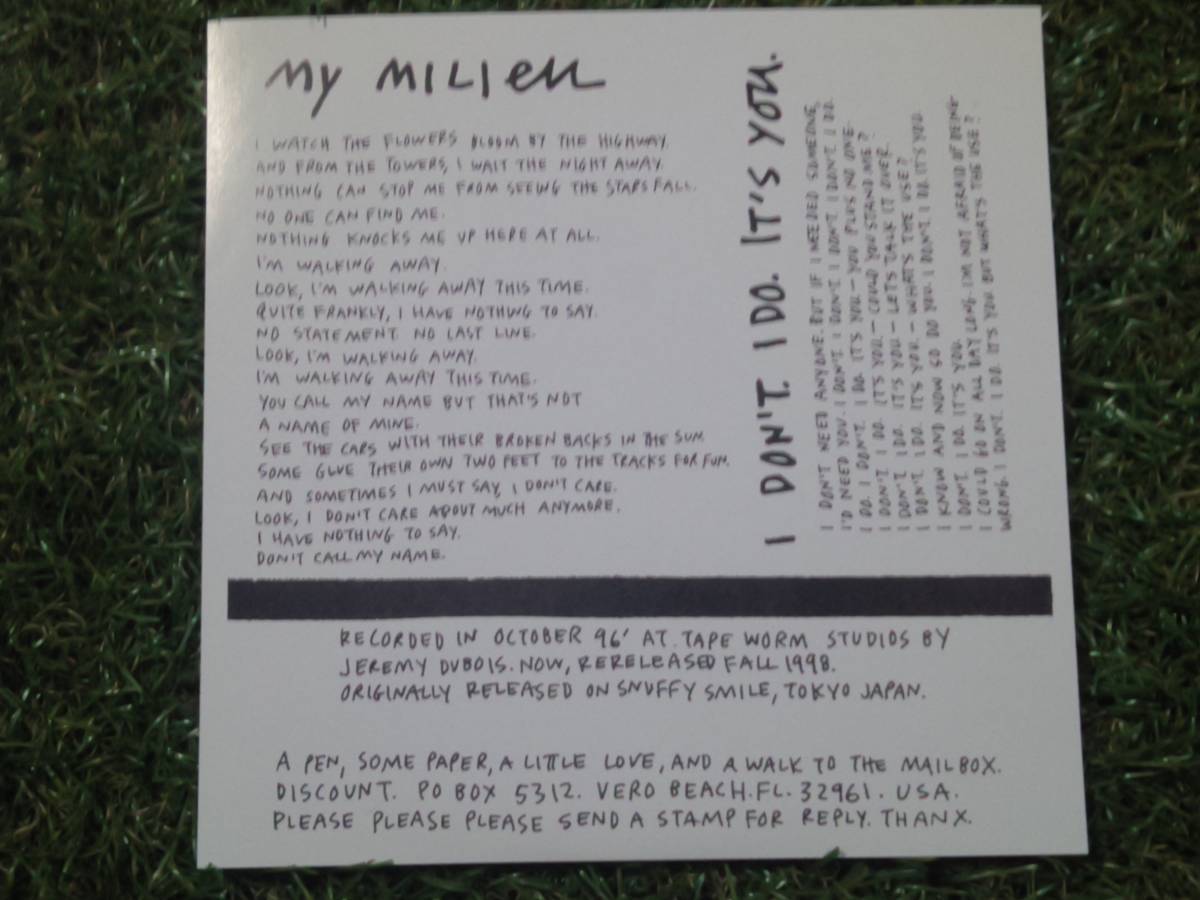 My MILIEU
I WATCH THE FLOWERS BLOOM BY THE HIGHWAY.
AND FROM THE TOWERS, I WAIT THE NIGHT AWAY.
NOTHING CAN STOP ME FROM SEEING THE STARS FALL.
NO ONE CAN FIND ME.
NOTHING KNOCKS ME UP HERE AT ALL.
I'M WALKING AWAY.
LOOK, I'M WALKING AWAY THIS TIME.
QUITE FRANKLY, I HAVE NOTHING TO SAY.
NO STATEMENT. NO LAST LINE.
LOOK, I'M WALKING AWAY.
I'M WALKING AWAY THIS TIME.
YOU CALL MY NAME BUT THAT'S NOT
A NAME OF MINE.
SEE THE CARS WITH THEIR BROKEN BACKS IN THE SUN.
SOME GLUE THEIR OWN TWO FEET TO THE TRACKS FOR FUN.
AND SOMETIMES I MUST SAY, I DON'T CARE.
LOOK, I DON'T CARE ABOUT MUCH ANYMORE.
I HAVE NOTHING TO SAY.
DON'T CALL MY NAME.
I DON'T. I DO. IT'S YOU.
I DON'T NEED ANYONE. BUT IF I NEEDED SOMEONE,
I'D NEED YOU. I DON'T. I DON'T. I DON'T. I DON'T. I DO.
I DO. I DON'T. I DO. IT'S YOU - YOU PLUS NO ONE.
I DON'T. I DO. IT'S YOU - COULD YOU STAND ME?
I DON'T. I DO. IT'S YOU - LET'S TALK IT OVER.
I DON'T. I DO. IT'S YOU. - WHAT'S THE USE?
I KNOW AND NOW SO DO YOU. I DON'T. I DO. IT'S YOU.
I DON'T. I DO. IT'S YOU.
I COULD GO ON ALL DAY LONG. I'M NOT AFRAID OF BEING
WRONG. I DON'T. I DO. IT'S YOU BUT WHAT'S THE USE?
RECORDED IN OCTOBER 96' AT TAPE WORM STUDIOS BY
JEREMY DUBOIS. NOW, RERELEASED FALL 1998.
ORIGINALLY RELEASED ON SNUFFY SMILE, TOKYO JAPAN.
A PEN, SOME PAPER, A LITTLE LOVE, AND A WALK TO THE MAILBOX.
DISCOUNT. PO BOX 5312. VERO BEACH. FL. 32961. USA.
PLEASE PLEASE PLEASE SEND A STAMP FOR REPLY. THANX.